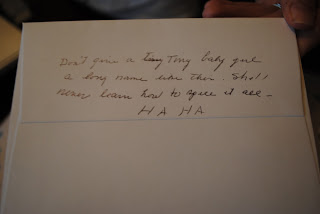 Don't give a tiny Tiny baby girl
a long name like this. She'll
never learn how to spell it all -
HA HA